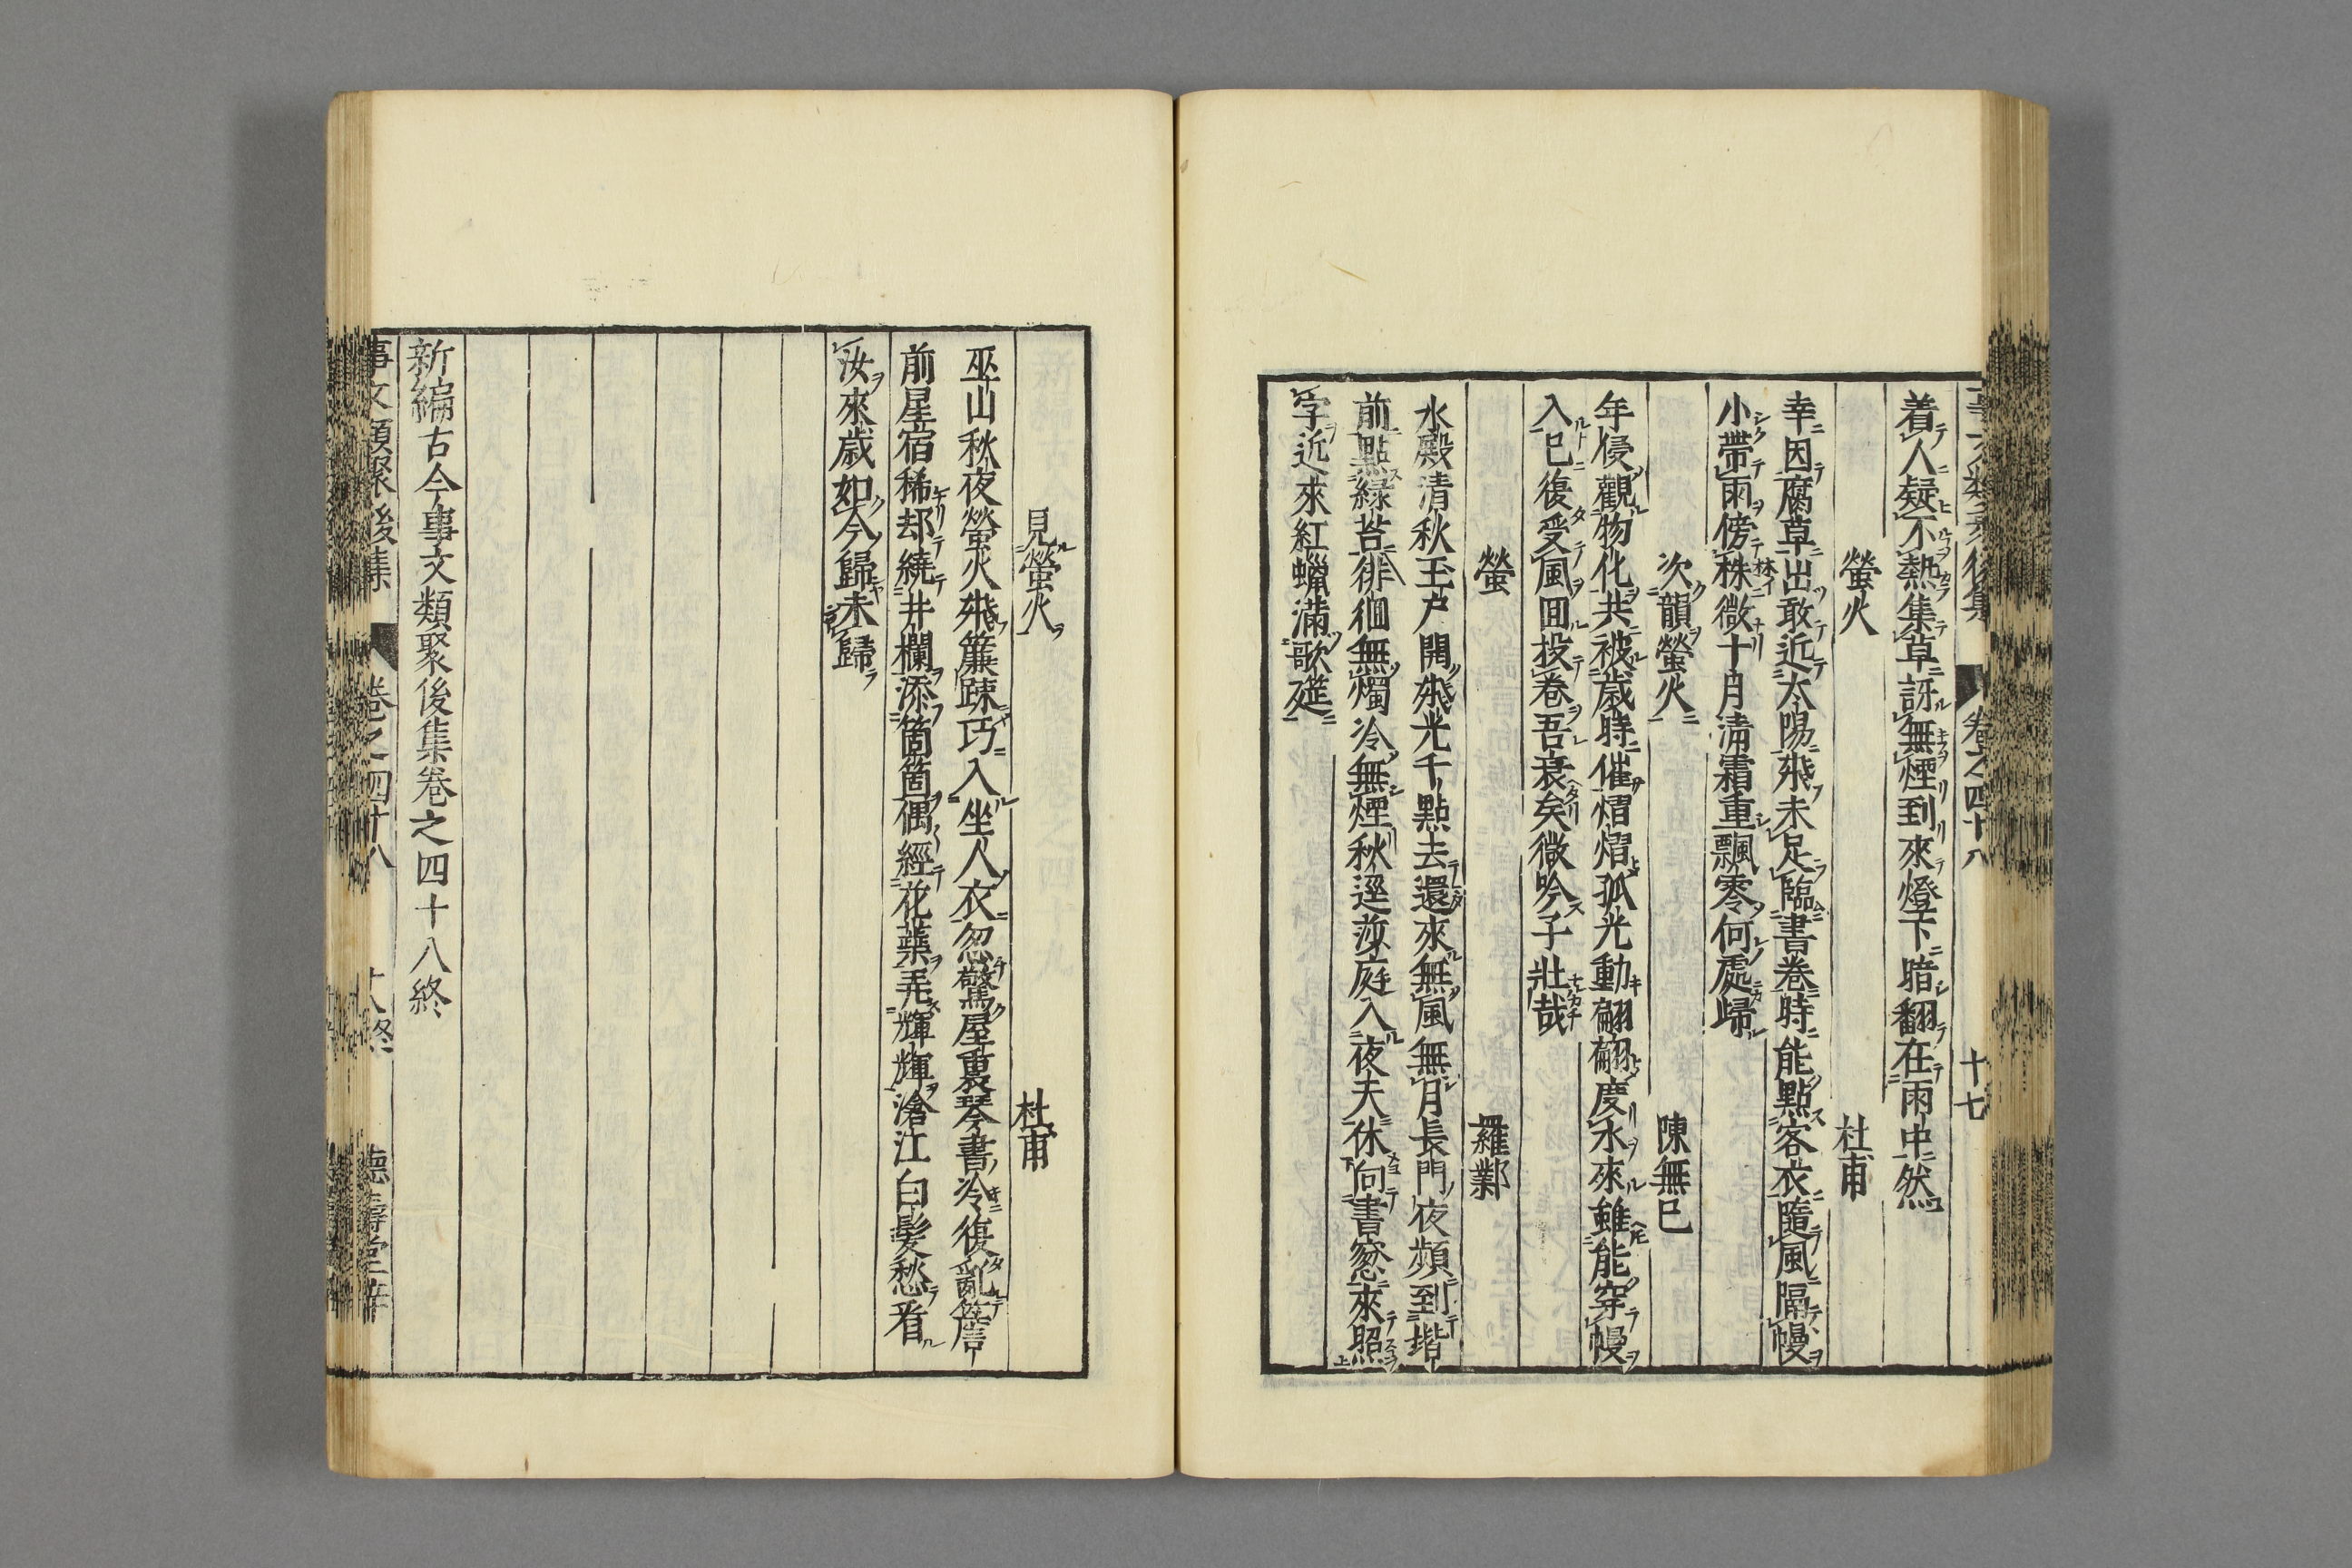 着人疑不熱集草訝無煙到來燈下暗翻在雨中然
螢火 杜甫
幸因腐草出敢近太陽飛未足臨書卷時能點客衣隨風隔幔
小帶雨傍株微十月淸霜重飄零何處歸
次韻螢火 陳無巳
年侵觀物化共被歲時催熠熠孤光動翩翩度水來雖能穿幔
入巳復受風囬投卷吾衰矣微吟子壯哉
螢 羅鄴
水殿清秋玉户開飛光千點去還來無風無月長門夜頻到堦
前點緑苔徘徊無燭冷無煙秋逕莎庭入夜夫休向書窓來照
字近來紅蠟滿歌筵
見螢火 杜甫
巫山秋夜螢火飛簾疎巧入坐人衣忽驚屋裏琴書冷復亂簷
前星宿稀却繞井欄添箇箇偶經花蘂弄輝輝滄江白髪愁看
汝來歳如今歸未歸
新編古今事文類聚後集卷之四十八終